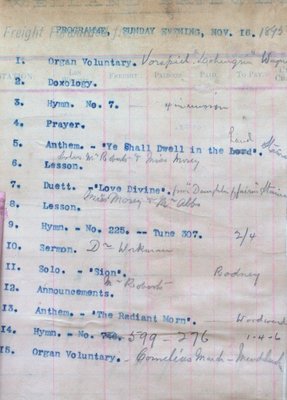 Freight
PROGRAMME, SUNDAY EVENING, NOV. 16. 1895
1. Organ Voluntary. Vorspiel "Lohengrin" Wagner
2. Doxology.
3. Hymn. No. 7. 4 in unison
4. Prayer.
5. Anthem. - "Ye Shall Dwell in the Lord". Land Stainer
Solos Mr Roberts & Miss Morey
6. Lesson.
7. Duett. - "Love Divine". from "Daughter of Jairus" Stainer
Miss Morey & Mr
8. Lesson.
9. Hymn. - No. 225. -- Tune 307. 2/4
10. Sermon. Dr Workman
11. Solo. - "Sion". Rodney
Mr Roberts
12. Announcements.
13. Anthem. - "The Radiant Morn". Woodward
14. Hymn. - No. 599 - 276 1-4-6
15. Organ Voluntary. - Cornelius March - Mendelssohn